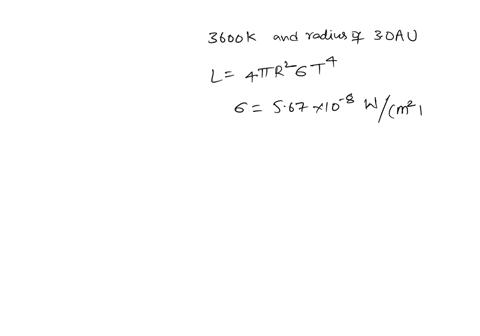 3600K and radius of 3.0AU
L = 4πR²σT⁴
σ = 5.67 × 10⁻⁸ W/(m²